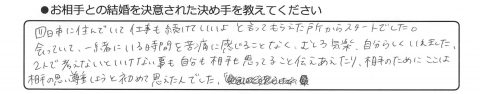 ●お相手との結婚を決意された決め手を教えてください
日市に住んでいて仕事も続けていいよ と言ってもらえた所からスタートでした。
会っていて、一緒にいる時間を苦痛に感じることなく、むしろ気楽、自分らしくいれました。
2人で考えないといけない事も自分も相手も思ってること伝えあえたり、相手のためにここは
相手の思い尊重しようと初めて思えた人でした。